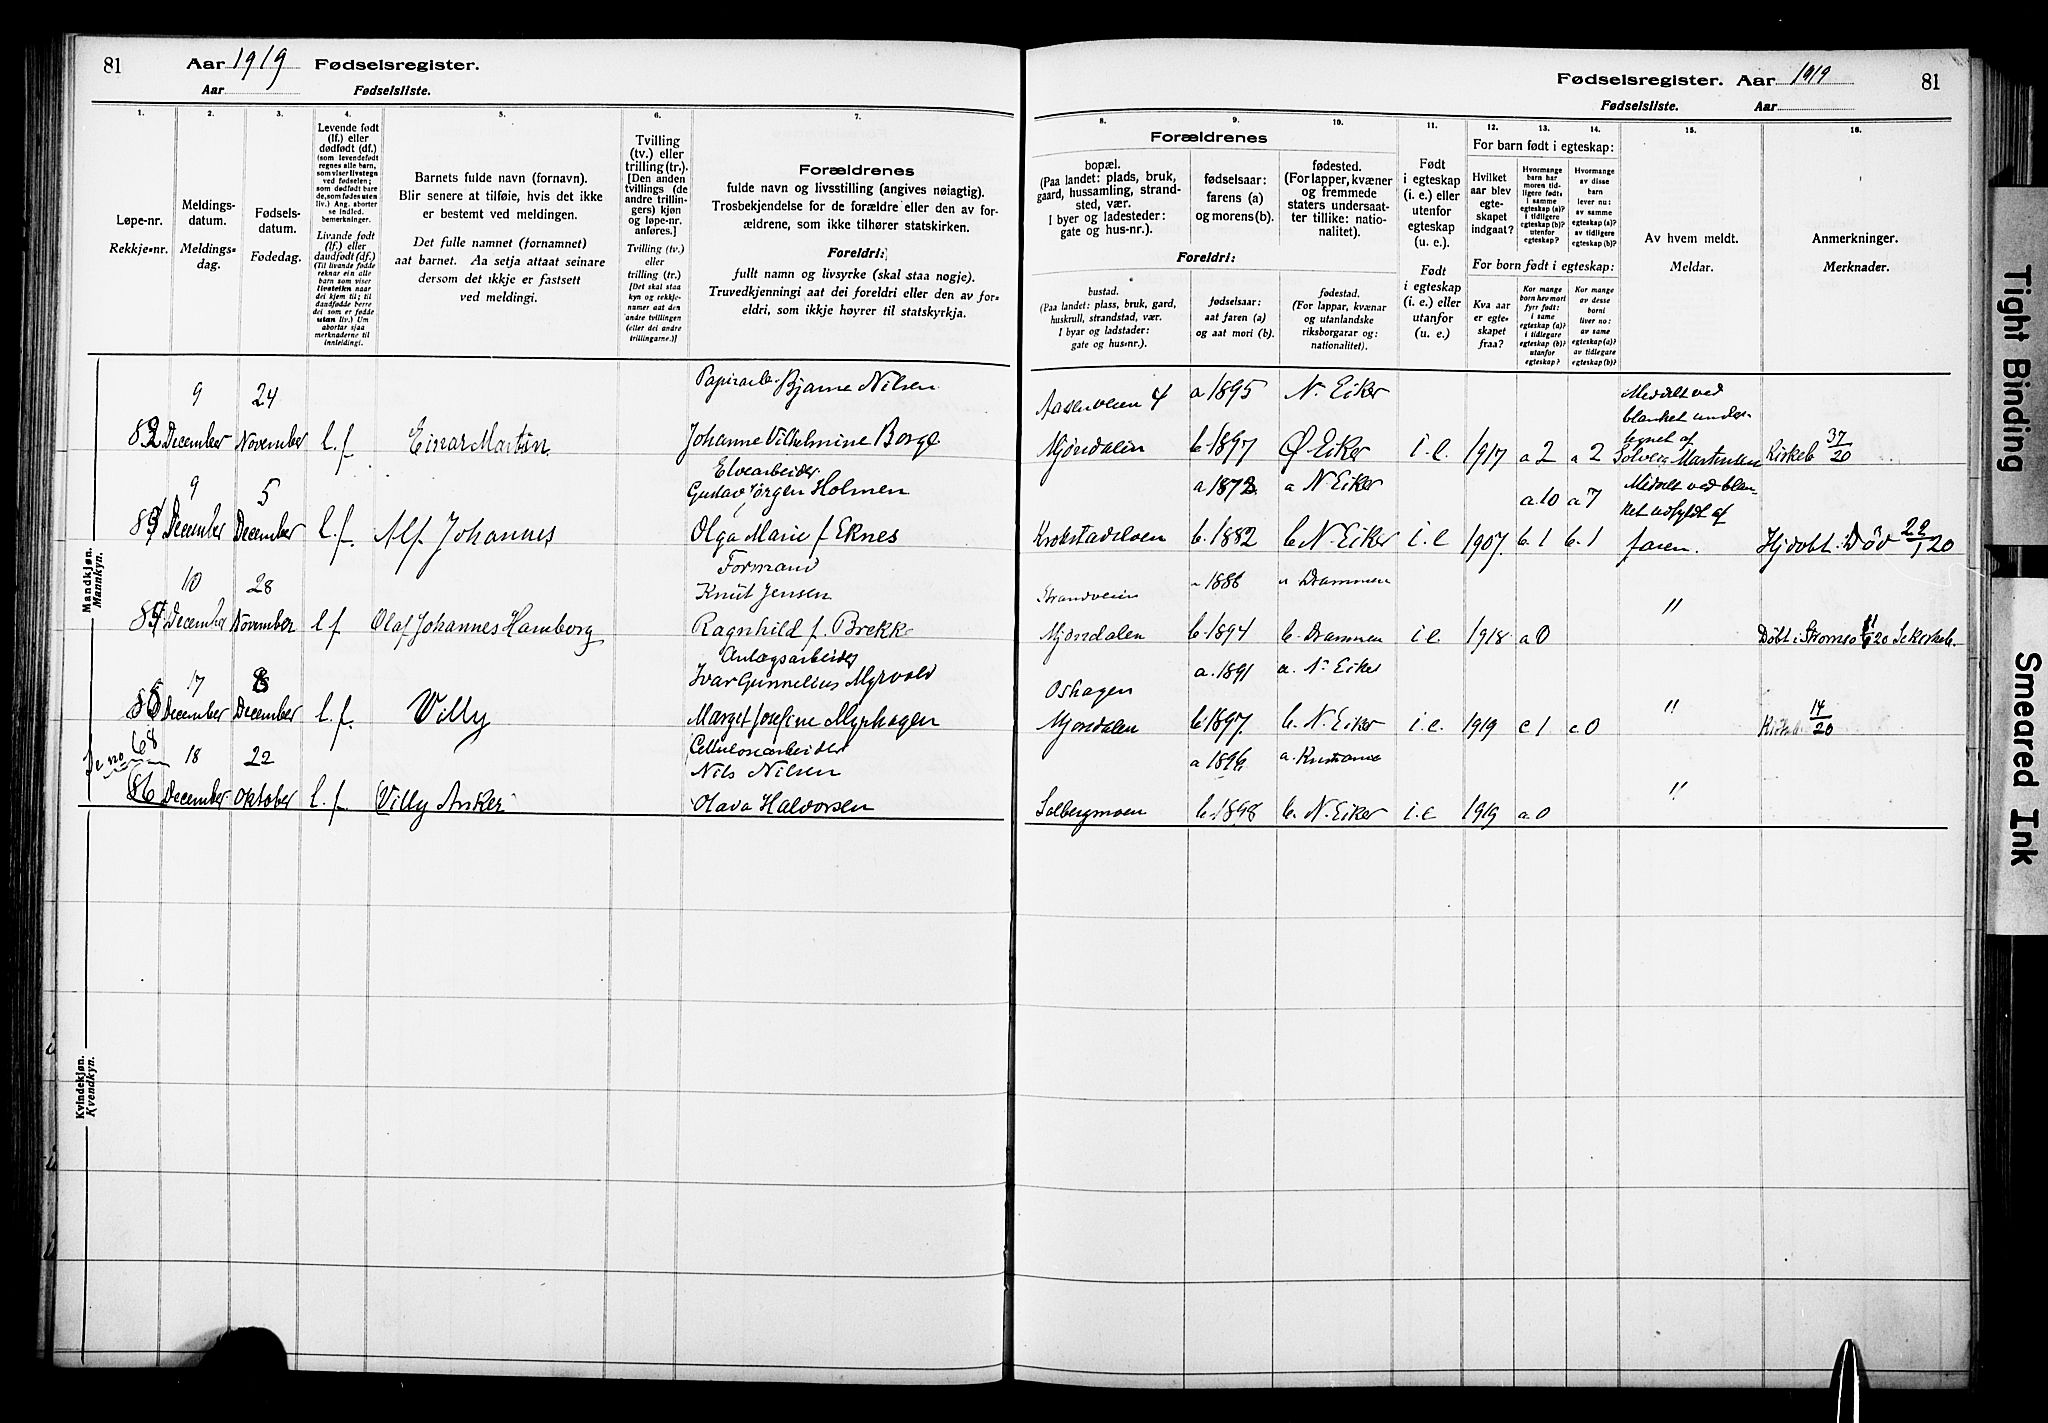 81 Aar 1919 Fødselsregister.
Aar Fødselsliste.
Fødselsregister. Aar 1919 81
Fødselsliste. Aar
1. 2. 3. 4. 5. 6. 7.
Løpe-nr.
Rekkje-nr.
Meldings-
datum.
Meldings-
dag.
Fødsels-
datum.
Fødedag.
Levende født
(lf.) eller
dødfødt (df.)
(som levendefødt
regnes alle barn,
som viser livstegn
ved fødselen;
som dødfødt bare
de, som fødes uten
liv.) Ang. aborter
se indled.
bemerkninger.
Livande født
(lf.) eller
daudfødt (df.)
(Til livande fødde
reknar ein alle
barn som viser
livsteikn naar
dei kjem til; til
daudfødde berre
dei som er fødde
utan liv.) Um
abortar sjaa
merknaderne til
innleidingi.
Barnets fulde navn (fornavn).
Blir senere at tilføie, hvis det ikke
er bestemt ved meldingen.
Det fulle namnet (fornamnet)
aat barnet. Aa setja attaat seinare
dersom det ikkje er fastsett
ved meldingi.
Tvilling
(tv.) eller
trilling (tr.).
[Den anden
tvillings (de
andre trillin-
gers) kjøn
og løpe-nr.
anføres.]
Tvilling (tv.)
eller
trilling (tr.)
[Det skal staa
kyn og rekkje-
numer aat den
andre tvillingen
(eller dei andre
trillingarne.)]
Forældrenes
fulde navn og livsstilling (angives nøiagtig).
Trosbekjendelse for de forældre eller den av for-
ældrene, som ikke tilhører statskirken.
Foreldri:
fullt namn og livsyrke (skal staa nøgje).
Truvedkjenningi aat dei foreldri eller den av for-
eldri, som ikkje høyrer til statskyrkja.
8. 9. 10. 11. 12. 13. 14. 15. 16.
Forældrenes
bopæl.
(Paa landet: plads, bruk,
gaard, hussamling, strand-
sted, vær.
I byer og ladesteder:
gate og hus-nr.).
fødselsaar:
farens (a)
og morens (b).
fødested.
(For lapper, kvæner
og fremmede
staters undersaat-
ter tillike: natio-
nalitet).
Foreldri:
bustad.
(Paa landet: plass, bruk, gard,
huskrull, strandstad, vær.
I byar og ladstader:
gate og hus-nr.).
fødselsaar:
aat faren (a)
og aat mori (b).
fødestad.
(For lappar, kvænar
og utanlandske
riksborgarar og:
nationalitet).
Født
i egteskap
(i. e.) eller
utenfor
egteskap
(u. e.).
Født
i egteskap
(i. e.) eller
utanfor
(u. e.).
For barn født i egteskap:
Hvilket
aar blev
egte-
skapet
indgaat?
Hvormange
barn har
moren tid-
ligere født,
i samme
egteskap (a)?
i tidligere
egteskap (b)?
utenfor
egteskap?
Hvormange
av disse
barn
lever nu:
av samme
egteskap (a)?
av tidligere
egteskap (b)?
For born født i egteskap:
Kva aar
er egte-
skapet
fraa?
Kor mange
born hev mori
fyrr født:
i same
egteskap (a)?
i tidlegare
egteskap (b)?
utanfor
egteskap?
Kor mange
av desse
borni
liver no:
av same
egteskap (a)?
av tidlegare
egteskap (b)?
Av hvem meldt.
Meldar.
Anmerkninger.
Merknader.
Mandkjøn.
Mannkyn.
9 24 Bjarne Nilsen
82 December November l. f. Einar Martin Johanne Vilhelmine Borge
Aasenveien 4 a 1895 N. Eiker Meddelt ved
blanket under-
tegnet af
Mjøndalen b. 1897 Ø. Eiker i. e. 1917 a 2 a 2 Solveig Martinsen Kirkeb 37/20
9 5 Elvearbeider
Gustav Jørgen Holmen
83 December December l. f. Alf Johannes Olga Marie f. Eknes
a 1872 a N. Eiker a. 10 a 7 Meddelt ved blan-
ket udfyldt af
Krokstadelven b. 1882 b. N. Eiker i. e 1907 b. 1 b. 1 faren. Hjdøbt. Død 22/1 20
10 28 Formand
Knut Jensen
84 December November l f Olaf Johannes Hamborg Ragnhild f. Brekke
Strandveien 1886 a Drammen "
Mjøndalen b. 1894 b. Drammen i. e. 1918 a 0 Døbt i Strømsø 20 Se kirkeb.
17 8 Anlægsarbeider
Ivar Gunnelius Myrvold
85 December December l. f. Villy Marget Josefine Myrhagen
Oshagen a. 1891 a. N. Eiker "
Mjøndalen b. 1897. b. N. Eiker i. e. 1919 c 1 c 0 14/20
Se no 68
18 22 Cellulosearbeider
Nils Nilsen
86 December Oktober l. f Villy Anker Olava Halvorsen
a 1896 a. Kristiania "
Solbergmoen b. 1898 b. N. Eiker i. e 1919 a. 0
Kvindekjøn.
Kvendkyn.
Tight Binding
Smeared Ink